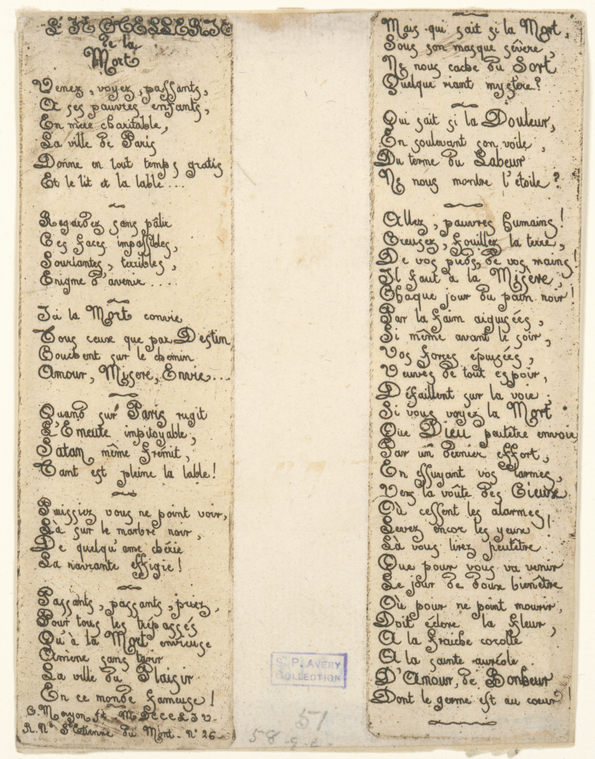 L'HOTELLERIE
de la
Mort
Venez, voyez, passants,
A ses pauvres enfants,
En mère charitable,
La ville de Paris
Donne en tout temps gratis
Et le lit et la table...
Regardez sans pâlir
Ces faces impassibles,
Souriantes, terribles,
Enigme d'avenir....
Ici la Mort convie
Tous ceux que par Destin
Couchent sur le chemin
Amour, Misere, Envie...
Quand sur Paris rugit
L'Emeute impitoyable,
Satan même frémit,
Tant est pleine la table!
Puissiez vous ne point voir,
Là sur le marbre noir,
De quelqu'ame chérie
La navrante effigie!
Passants, passants, priez,
Pour tous les trépassés
Qu'à la Mort envieuse
Amène sans tarir
La ville du Plaisir
En ce monde fameuse!
C. Meryon ft. MDCCCLIV.
R. Nve St. Etienne du Mont. No 26.
Mais qui sait si la Mort,
Sous son masque sévère,
Ne nous cache du Sort
Quelque riant mystère?
Qui sait si la Douleur,
En soulevant son voile,
Du terme du Labeur
Ne nous montre l'étoile?
Allez, pauvres humains!
Creusez, fouillez la terre,
De vos pieds, de vos mains!
Il faut à la Misère,
Chaque jour du pain noir!
Par la faim aiguisées,
Si même avant le soir,
Vos forces épuisées,
Veuves de tout espoir,
Défaillent sur la voie
Si vous voyez la Mort
Que Dieu peutêtre envoie
Par un dernier effort,
En essuyant vos larmes,
Vers la voûte des Cieux
Où cessent les alarmes!
Levez encore les yeux
Là vous lirez peutêtre
Que pour vous va venir
Le jour de doux bienêtre
Où pour ne point mourir,
Doit éclore la fleur,
A la fraiche corolle
A la sainte auréole
D'Amour, de Bonheur
Dont le germe est au coeur!
S. P. AVERY
COLLECTION
51
58